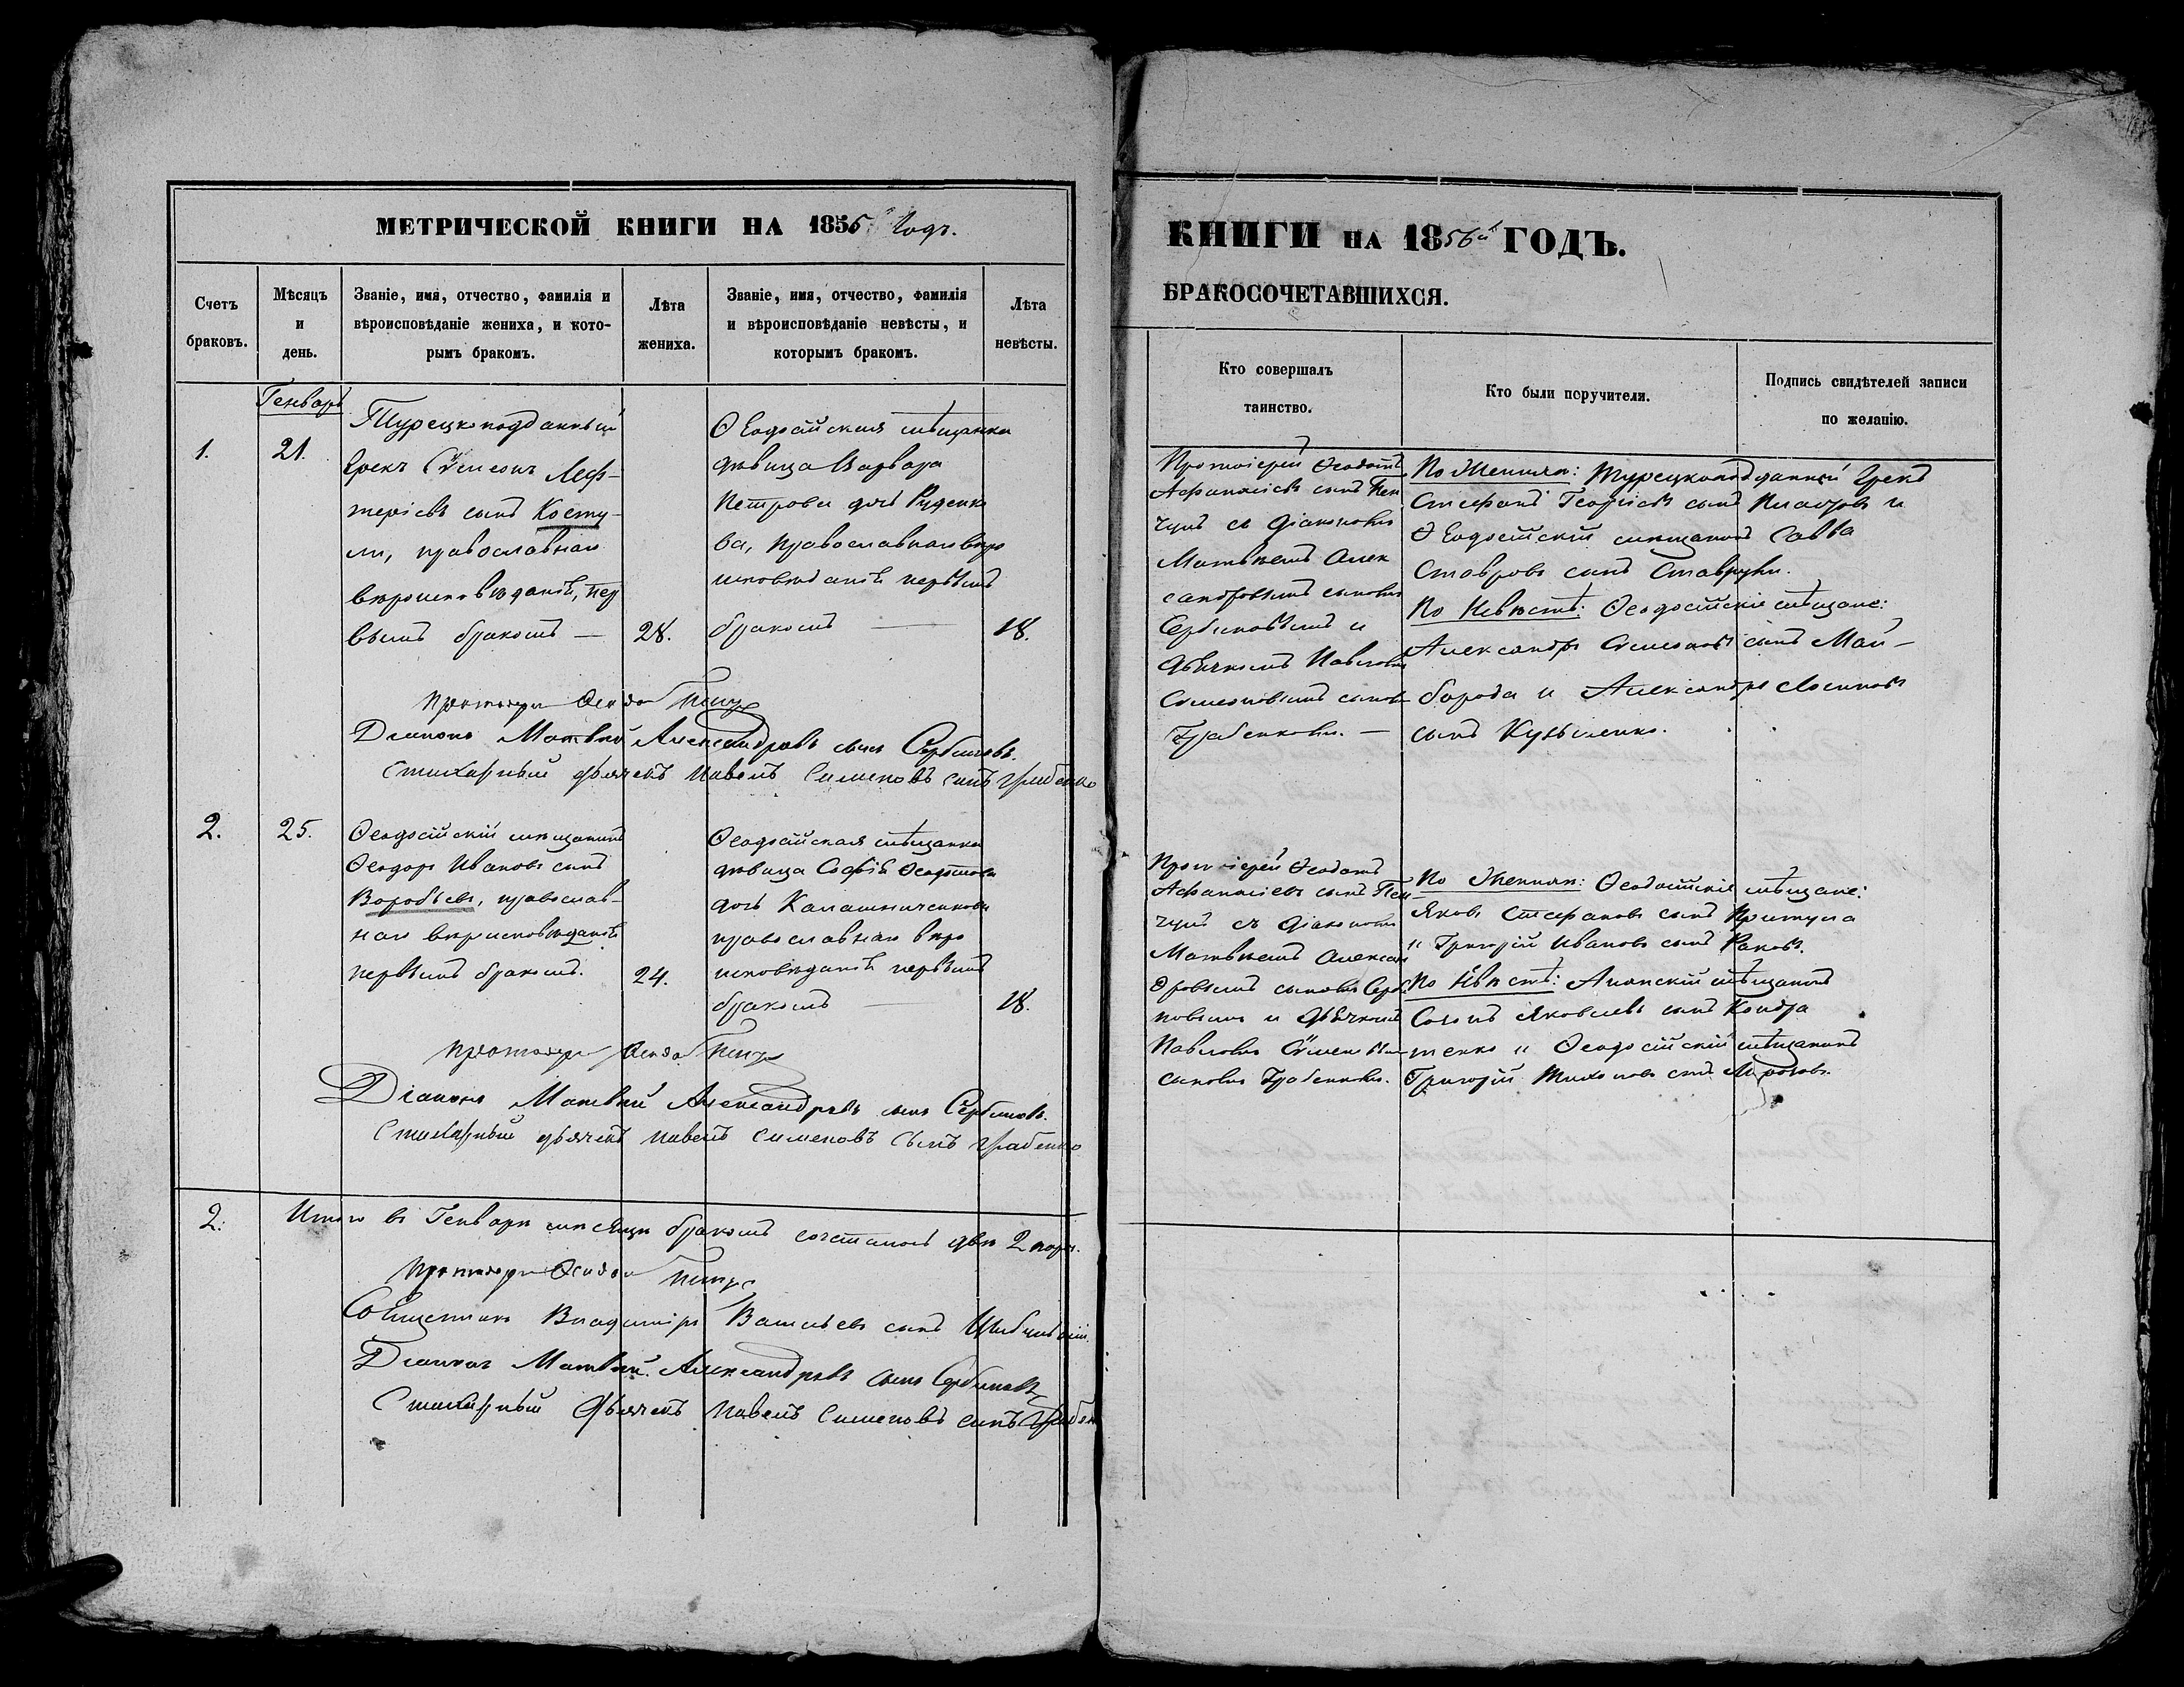 МЕТРИЧЕСКОЙ КНИГИ НА 1856й Годъ.
Счетъ браковъ.
Мѣсяцъ и день.
Званіе, имя, отчество, фамилія и
вѣроисповѣданіе жениха, и кото-
рымъ бракомъ.
Лѣта жениха.
Званіе, имя, отчество, фамилія
и вѣроисповѣданіе невѣсты, и
которымъ бракомъ.
Лѣта невѣсты.
Генварь
1.
21.
Турецкоподданный
Грекъ Сѵмеонъ Леф-
теріевъ сынъ Косту-
ли, православнаго
вѣроисповѣданія, пер
вымъ бракомъ —
28.
Ѳеодосійская мѣщанка
дѣвица Варвара
Петрова дочь Руденко
ва, православнаго вѣро
исповѣданія первымъ
бракомъ —
18.
Протоіерей Ѳеодотъ
Діаконъ Матвѣй Александровъ сынъ Сербиновъ.
Стихарный дьячекъ Павелъ Сименовъ сынъ Грабенко
2.
25.
Ѳеодосійскій мѣщанинъ
Ѳеодоръ Ивановъ сынъ
Воробьевъ, православ-
наго вѣроисповѣданія
первымъ бракомъ.
24.
Ѳеодосійская мѣщанка
дѣвица Софія Ѳеодотова
дочь Калашниченкова
православнаго вѣро
исповѣданія первымъ
бракомъ —
18.
Протоіерей Ѳеодотъ
Діаконъ Матвѣй Александровъ сынъ Сербиновъ.
Стихарный дьячекъ Павелъ Сименовъ Сынъ Грабенко
2.
Итого въ Генварѣ мѣсяцѣ бракомъ сочеталось двѣ 2 пары.
Протоіерей Ѳеодотъ
Священникъ Владиміръ Васильевъ сынъ
Діаконъ Матвѣй Александровъ сынъ Сербиновъ
Стихарный Дьячекъ Павелъ Сименовъ сынъ Грабенко
КНИГИ НА 1856й ГОДЪ.
БРАКОСОЧЕТАВШИХСЯ.
Кто совершалъ
таинство.
Кто были поручители.
Подпись свидѣтелей записи
по желанію.
Протоіерей Ѳеодотъ
Аѳанасіевъ сынъ
съ Діакономъ
Матвѣемъ Алек
сандровымъ сыномъ
Сербиновымъ и
Дьячкомъ Павломъ
Сѵмеоновымъ сыномъ
Грабенкомъ. —
По Женихѣ: Турецкоподданный Грекъ
Стефанъ Георгіевъ сынъ и
Ѳеодосійскій мѣщанинъ Савва
Ставровъ сынъ Ставруки.
По Невѣстѣ: Ѳеодосійскіе мѣщане:
Александръ Сѵмеоновъ сынъ Май-
борода и Александръ Логиновъ
сынъ Кузьменко.
Протоіерей Ѳеодотъ
Аѳанасіевъ сынъ
съ Діакономъ
Матвѣемъ Алексан
дровымъ сыномъ Серби
новымъ и Дьячкомъ
Павломъ Сѵмеоновымъ
сыномъ Грабенкомъ.
По Женихѣ: Ѳеодосійскіе мѣщане:
Яковъ Стефановъ сынъ Притула
и Григорій Ивановъ сынъ Раковъ.
По Невѣстѣ: мѣщанинъ
Созонъ Яковлевъ сынъ Кондра
тенко и Ѳеодосійскій мѣщанинъ
Григорій Тихоновъ сынъ Мироновъ.